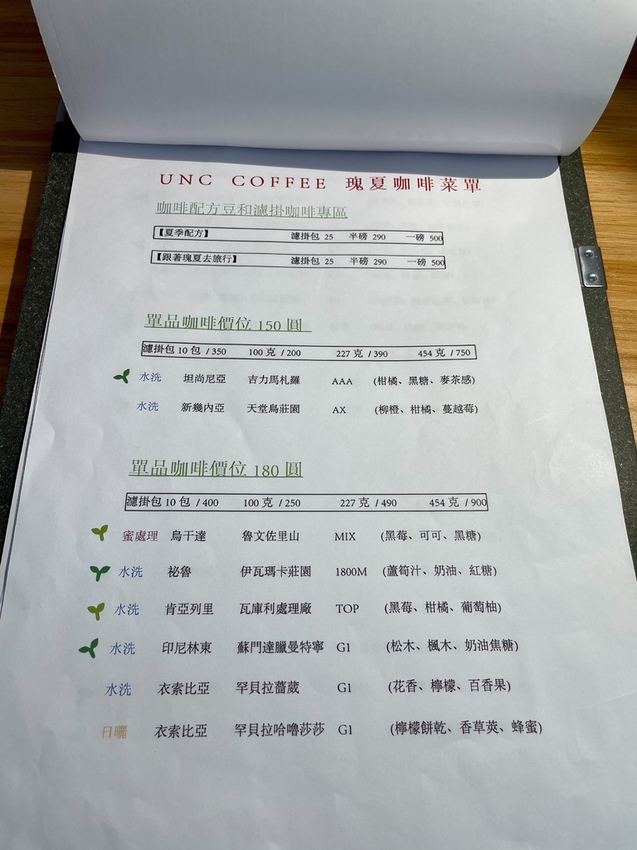 UNC COFFEE 瑰夏咖啡菜單
咖啡配方豆和濾掛咖啡專區
【夏季配方】 濾掛包 25 半磅 290 一磅 500
【跟著瑰夏去旅行】 濾掛包 25 半磅 290 一磅 500
單品咖啡價位 150 圓
濾掛包 10 包 / 350 100 克 / 200 227 克 / 390 454 克 / 750
水洗 坦尚尼亞 吉力馬札羅 AAA (柑橘、黑糖、麥茶感)
水洗 新幾內亞 天堂鳥莊園 AX (柳橙、柑橘、蔓越莓)
單品咖啡價位 180 圓
濾掛包 10 包 / 400 100 克 / 250 227 克 / 490 454 克 / 900
蜜處理 烏干達 魯文佐里山 MIX (黑莓、可可、黑糖)
水洗 祕魯 伊瓦瑪卡莊園 1800M (蘆筍汁、奶油、紅糖)
水洗 肯亞列里 瓦庫利處理廠 TOP (黑莓、柑橘、葡萄柚)
水洗 印尼林東 蘇門達臘曼特寧 G1 (松木、楓木、奶油焦糖)
水洗 衣索比亞 罕貝拉薔薇 G1 (花香、檸檬、百香果)
日曬 衣索比亞 罕貝拉哈嚕莎莎 G1 (檸檬餅乾、香草莢、蜂蜜)